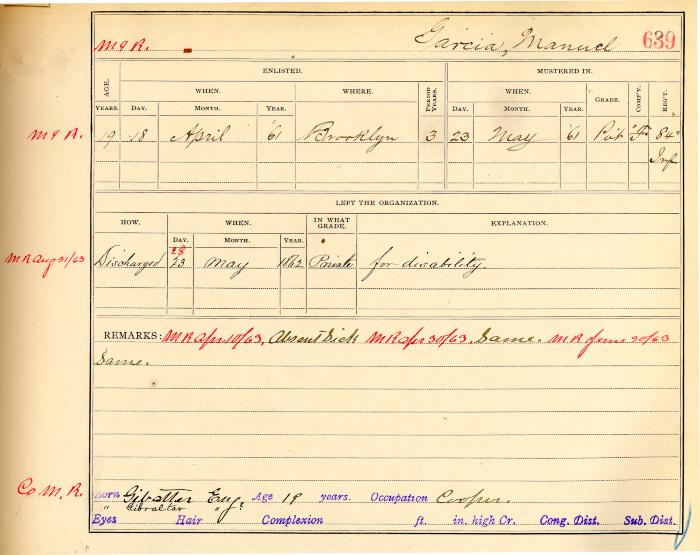 M & R. Garcia, Manuel 639
ENLISTED. MUSTERED IN.
AGE. WHEN. WHERE. PERIOD YEARS. WHEN. GRADE. COMP'Y. REG'T.
YEARS. DAY. MONTH. YEAR. DAY. MONTH. YEAR.
M & R. 19 18 April '61 Brooklyn 3 23 May '61 Pvt "F" 84"
Inf
LEFT THE ORGANIZATION.
HOW. WHEN. IN WHAT GRADE. EXPLANATION.
DAY. MONTH. YEAR.
28
M R Aug 31/63 Discharged 23 May 1862 Private for disability.
REMARKS: M R Apr 10/63, Absent Sick M R Apr 30/63, Same. M R June 30/63
Same.
Co M. R.
Born Gibatter Eng. Age 19 years. Occupation Cooper.
" Gibraltar "
Eyes Hair Complexion ft. in. high Cr. Cong. Dist. Sub. Dist.